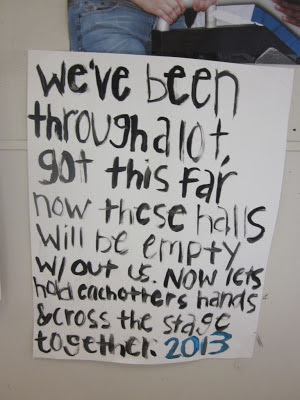 we've been
through a lot,
got this far
now these halls
will be empty
w/out us. Now lets
hold eachotters hands
& cross the stage
together. 2013